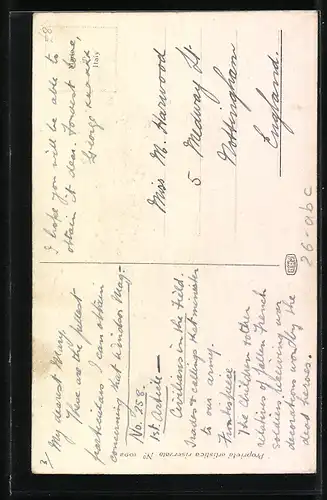 3/
My dearest Mary,
These are the fullest
particulars I can obtain
concerning that Windsor Mag-
No. 258.
1st Article —
Civilians in the Field.
Trades & callings that minister
to our army.
Frontispiece
The Children & other
relatives of fallen French
soldiers, receiving war
decorations worthy the
dead heroes.
I hope you will be able to
obtain it dear. Fondest love,
George xxxxxx
Miss M. Harwood
5 Medway St
Nottingham
England.
26-abc
Italy
Proprietà artistica riservata Nº